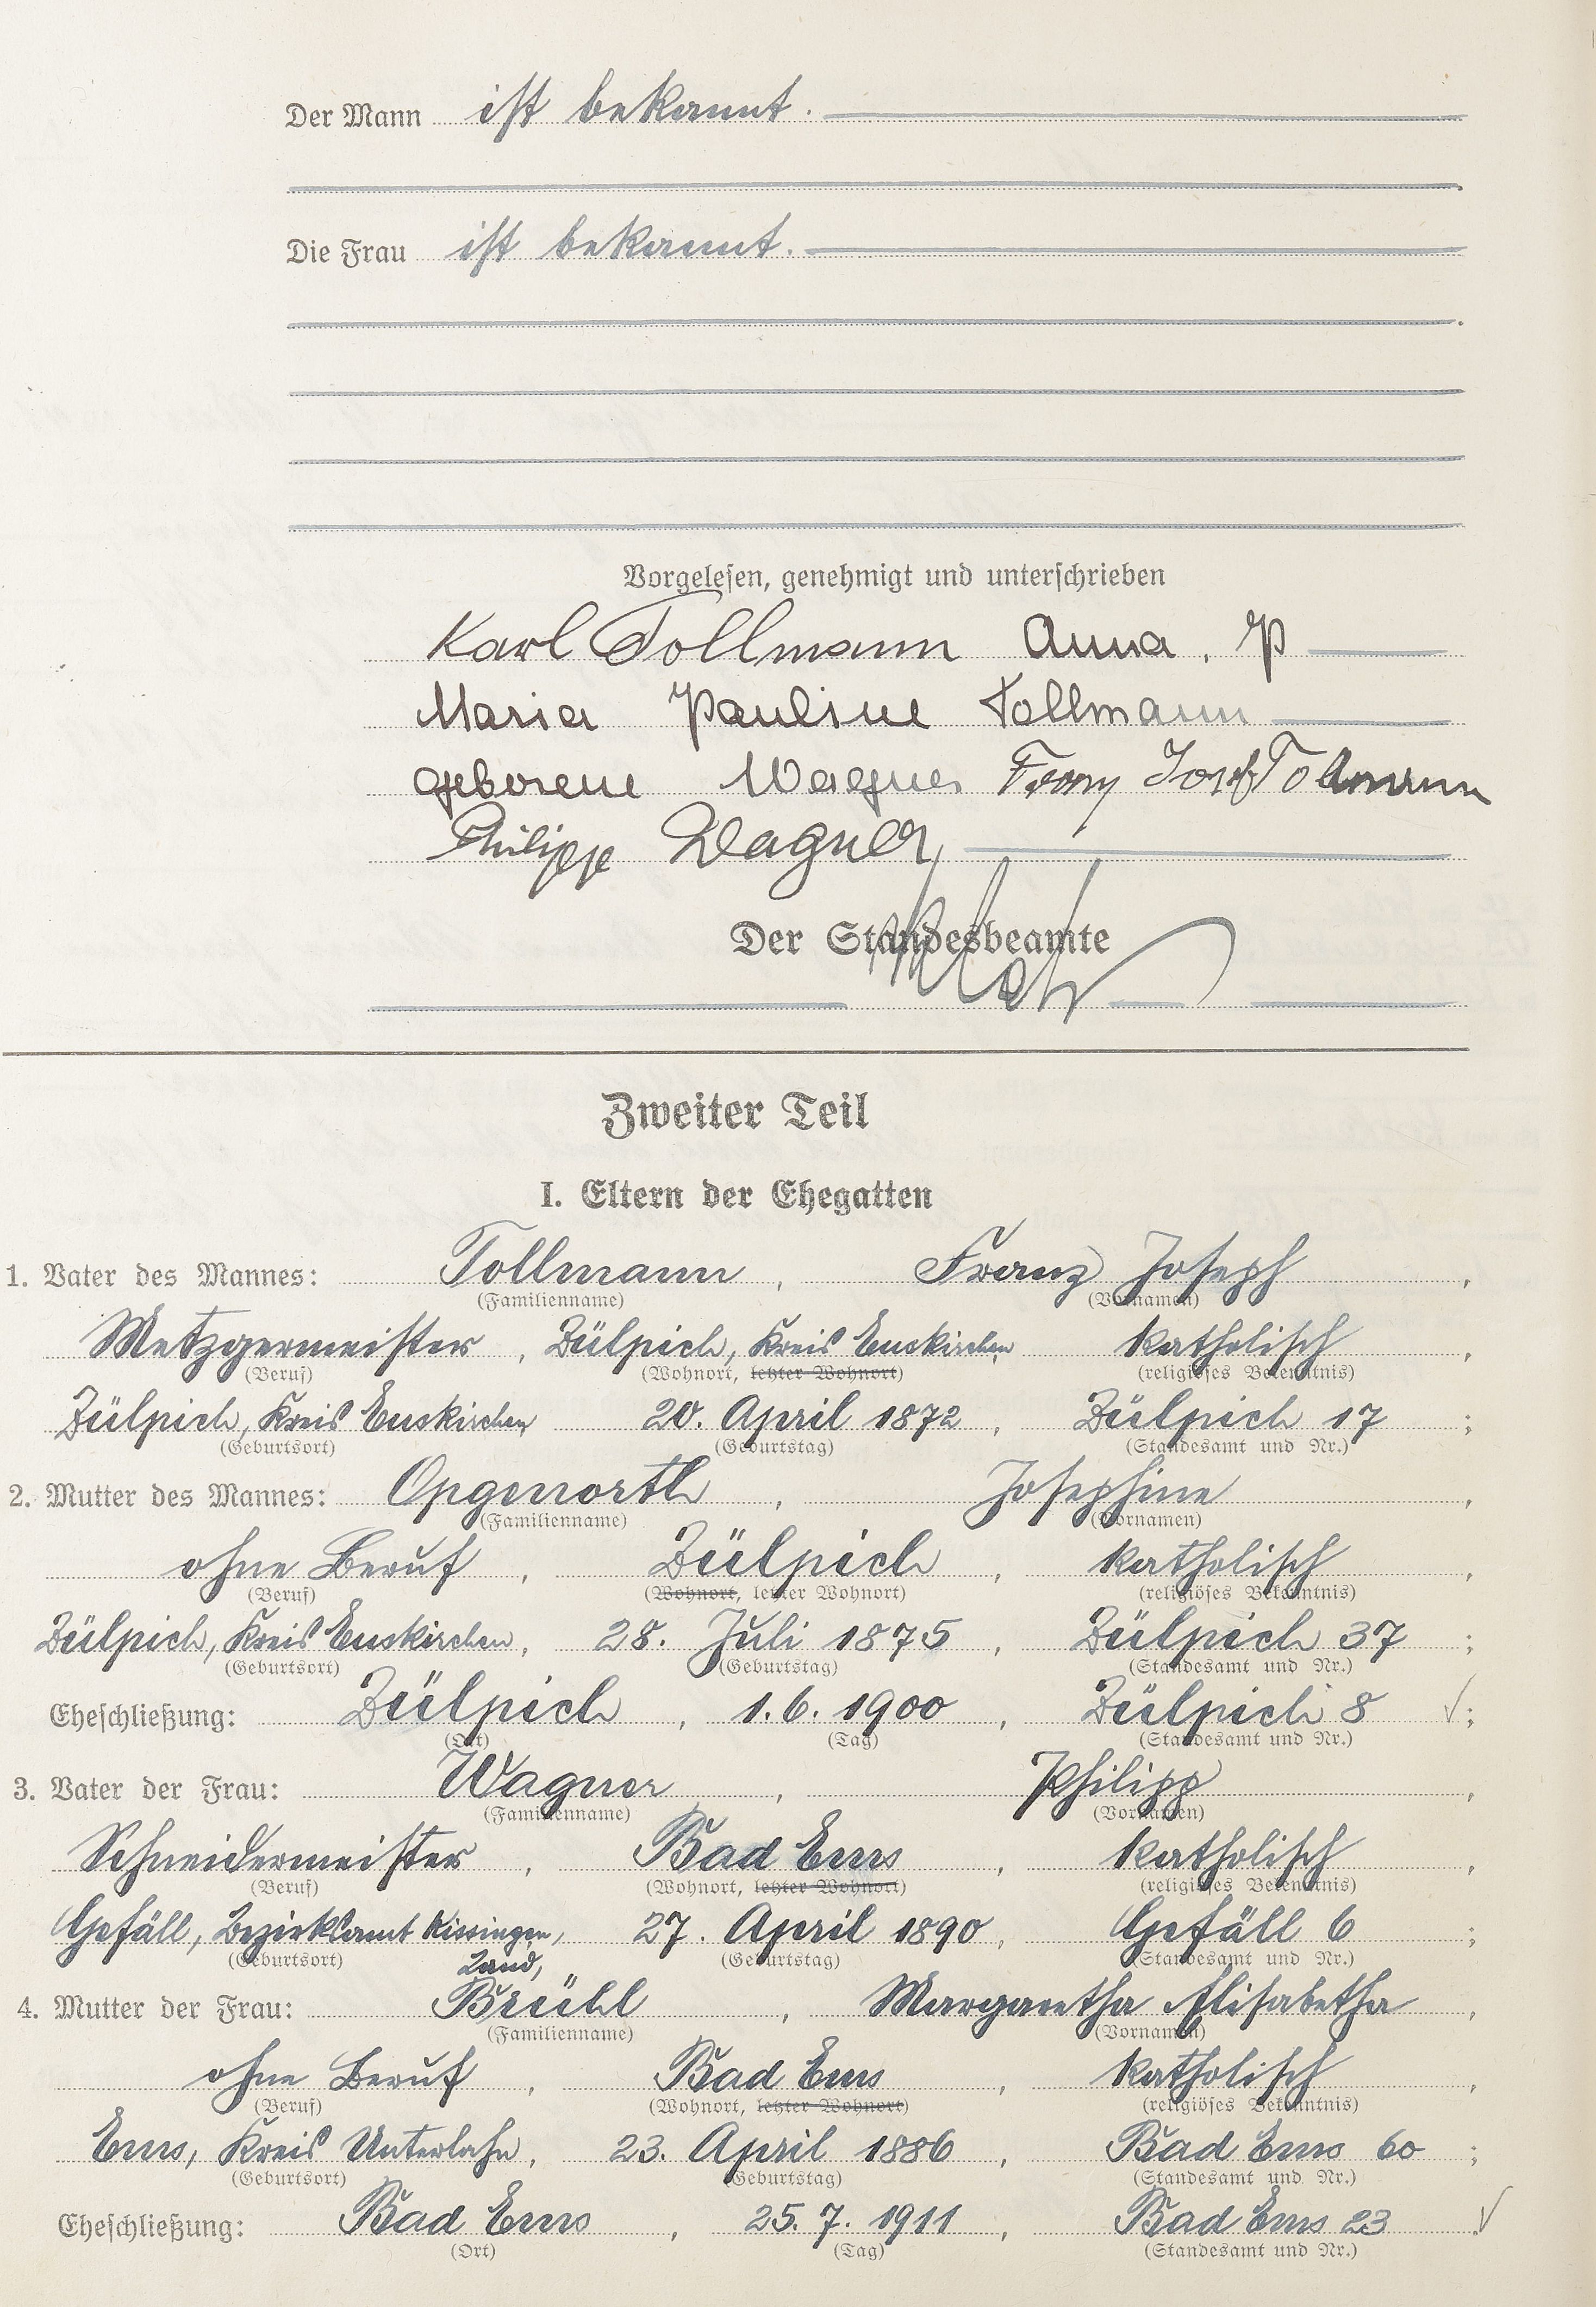 Der Mann ist bekannt.
Die Frau ist bekannt.
Vorgelesen, genehmigt und unterschrieben
Karl Tollmann Anna, P
Maria Pauline Tollmann
geborene Wagner Franz Josef Tollmann
Philipp Wagner,
Der Standesbeamte
Zweiter Teil
I. Eltern der Ehegatten
1. Vater des Mannes: Tollmann, Franz Joseph,
(Familienname) (Vornamen)
Metzgermeister, Zülpich, Kreis Euskirchen katholisch,
(Beruf) (Wohnort, letzter Wohnort) (religiöses Bekenntnis)
Zülpich, Kreis Euskirchen, 20. April 1872, Zülpich 17;
(Geburtsort) (Geburtstag) (Standesamt und Nr.)
2. Mutter des Mannes: Opgenorth, Josephine,
(Familienname) (Vornamen)
ohne Beruf, Zülpich, katholisch,
(Beruf) (Wohnort, letzter Wohnort) (religiöses Bekenntnis)
Zülpich, Kreis Euskirchen, 28. Juli 1875, Zülpich 37;
(Geburtsort) (Geburtstag) (Standesamt und Nr.)
Eheschließung: Zülpich, 1.6.1900, Zülpich 8 √;
(Ort) (Tag) (Standesamt und Nr.)
3. Vater der Frau: Wagner, Philipp,
(Familienname) (Vornamen)
Schneidermeister, Bad Ems, katholisch,
(Beruf) (Wohnort, letzter Wohnort) (religiöses Bekenntnis)
Gefäll, Bezirksamt Kissingen, 27. April 1890, Gefäll 6;
(Geburtsort) (Geburtstag) (Standesamt und Nr.)
Land,
4. Mutter der Frau: Brühl, Margaretha Elisabetha,
(Familienname) (Vornamen)
ohne Beruf, Bad Ems, katholisch,
(Beruf) (Wohnort, letzter Wohnort) (religiöses Bekenntnis)
Ems, Kreis Unterlahn, 23. April 1886, Bad Ems 60;
(Geburtsort) (Geburtstag) (Standesamt und Nr.)
Eheschließung: Bad Ems, 25.7.1911, Bad Ems 23. √
(Ort) (Tag) (Standesamt und Nr.)